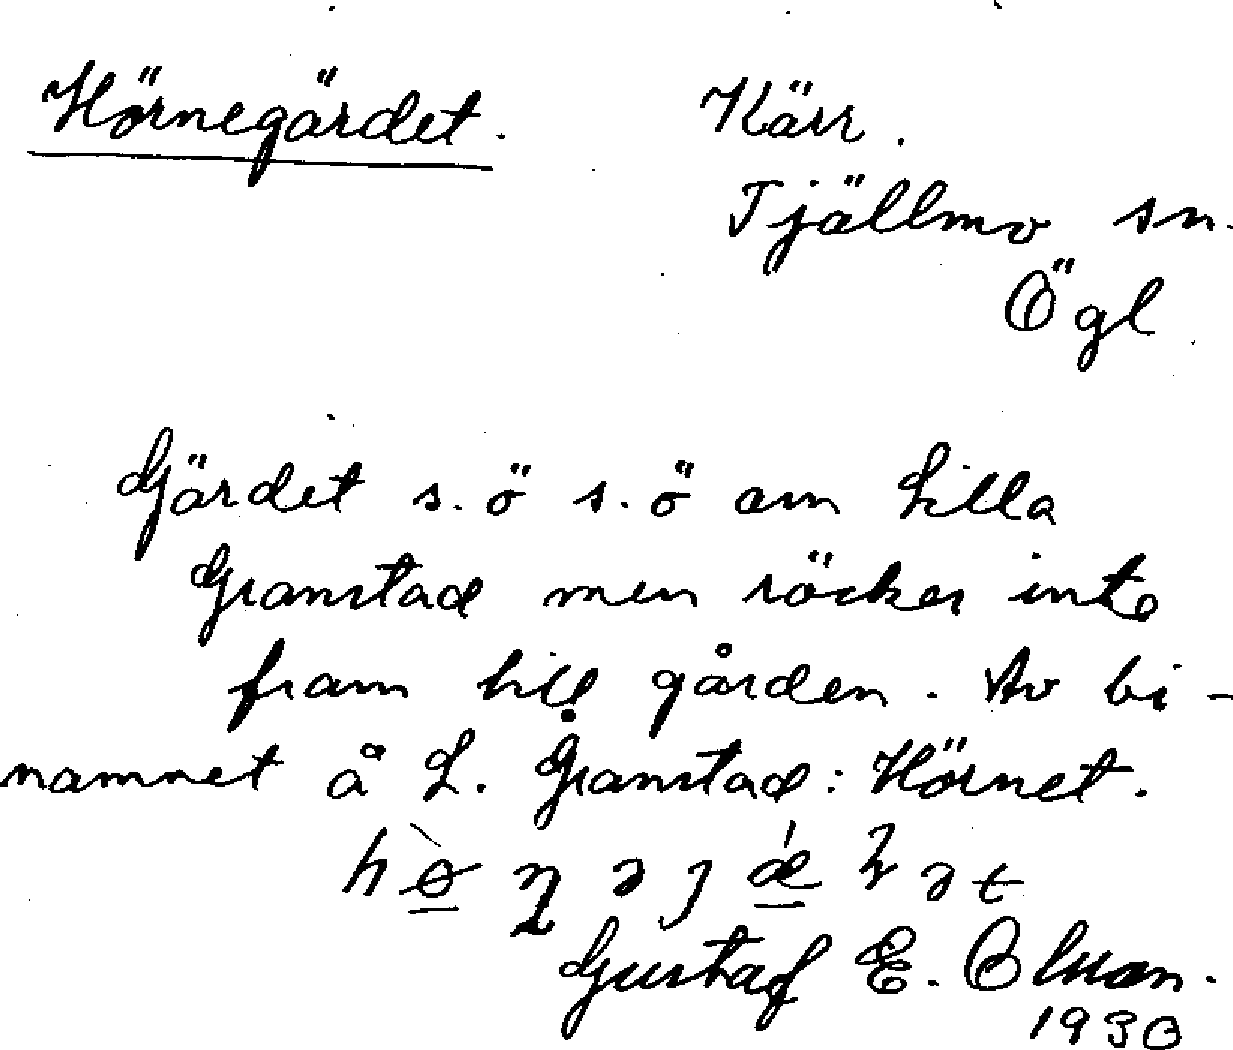 Hörnegärdet. Kärr.
Tjällmo sn.
Ögl
Gjärdet s.ö s.ö om Lilla
Granstad men räcker inte
fram till gården. Av bi-
namnet å L. Granstad: Hörnet.
Gustaf E. Olsson.
1930